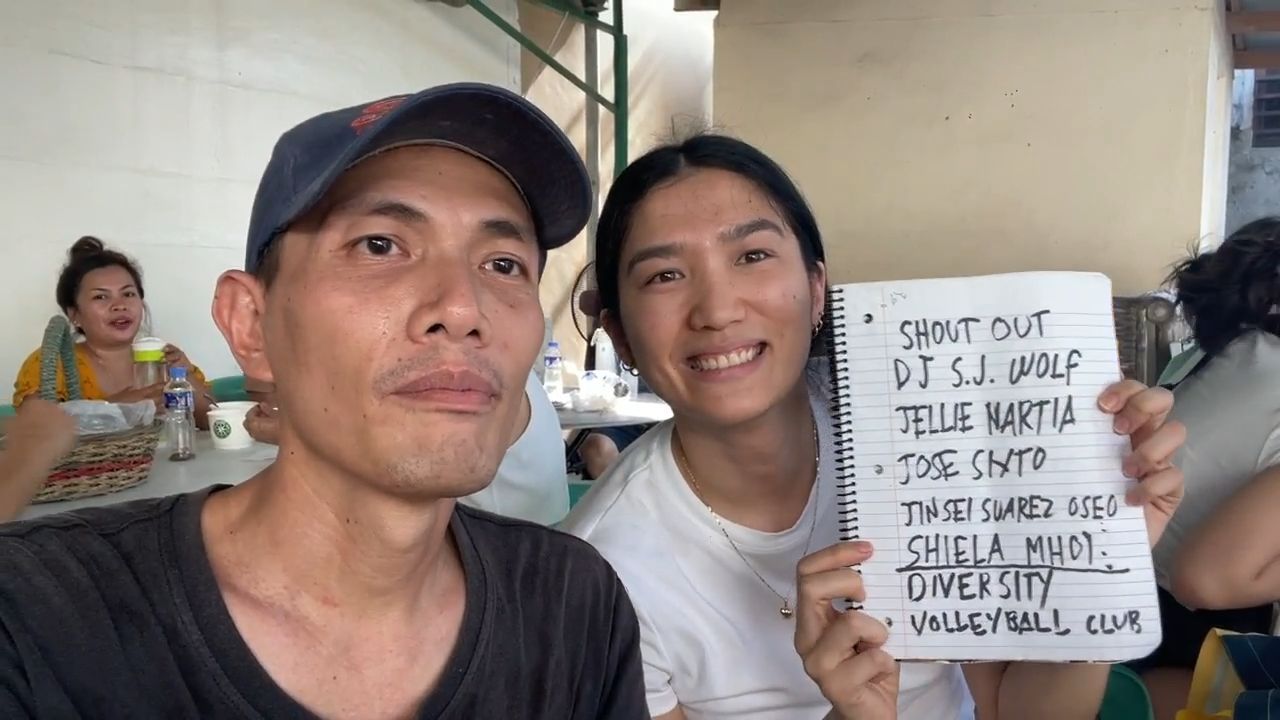 SHOUT OUT
DJ S.J. WOLF
JELLIE MARTIA
JOSE
JINSEI SUAREZ OSEO
SHIELA
DIVERSITY
VOLLEYBALL CLUB